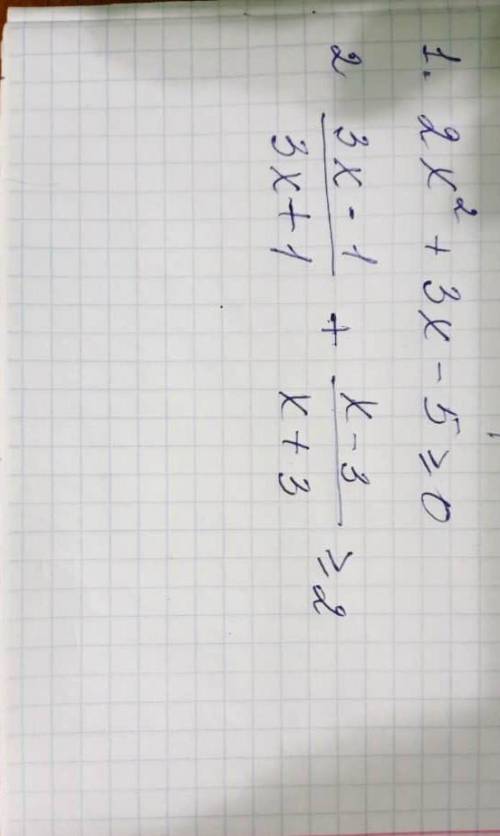 1. 2x² + 3x - 5 ≥ 0
2 (3x - 1)/(3x + 1) + (x - 3)/(x + 3) ≥ 2